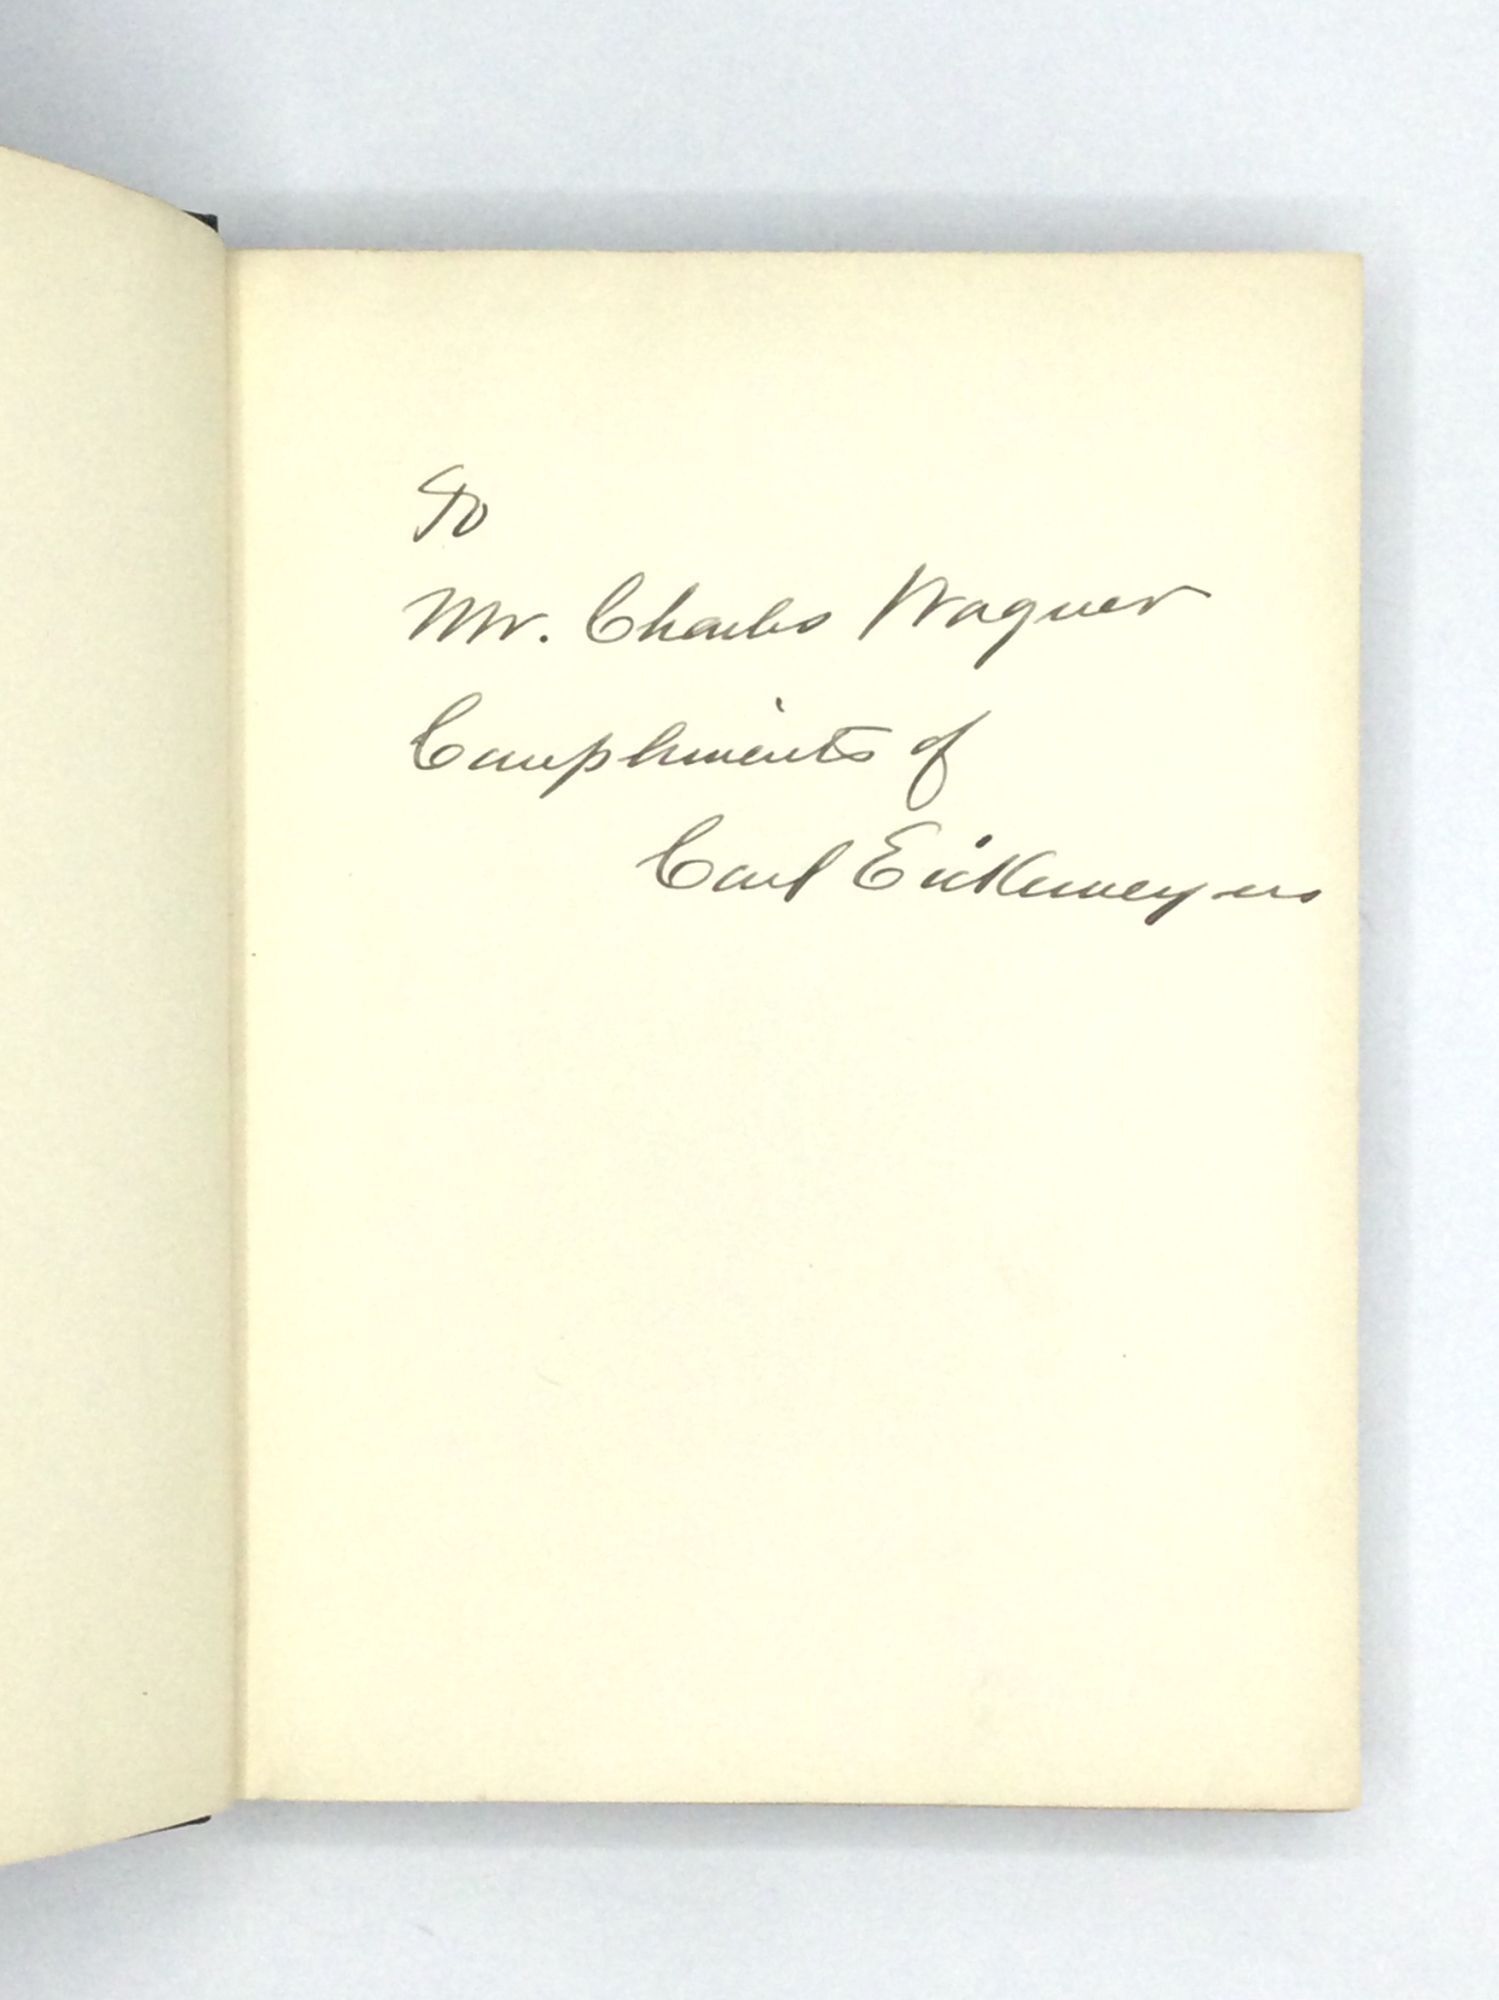 To
Mr. Charles Wagner
Compliments of
Carl Eickemeyer